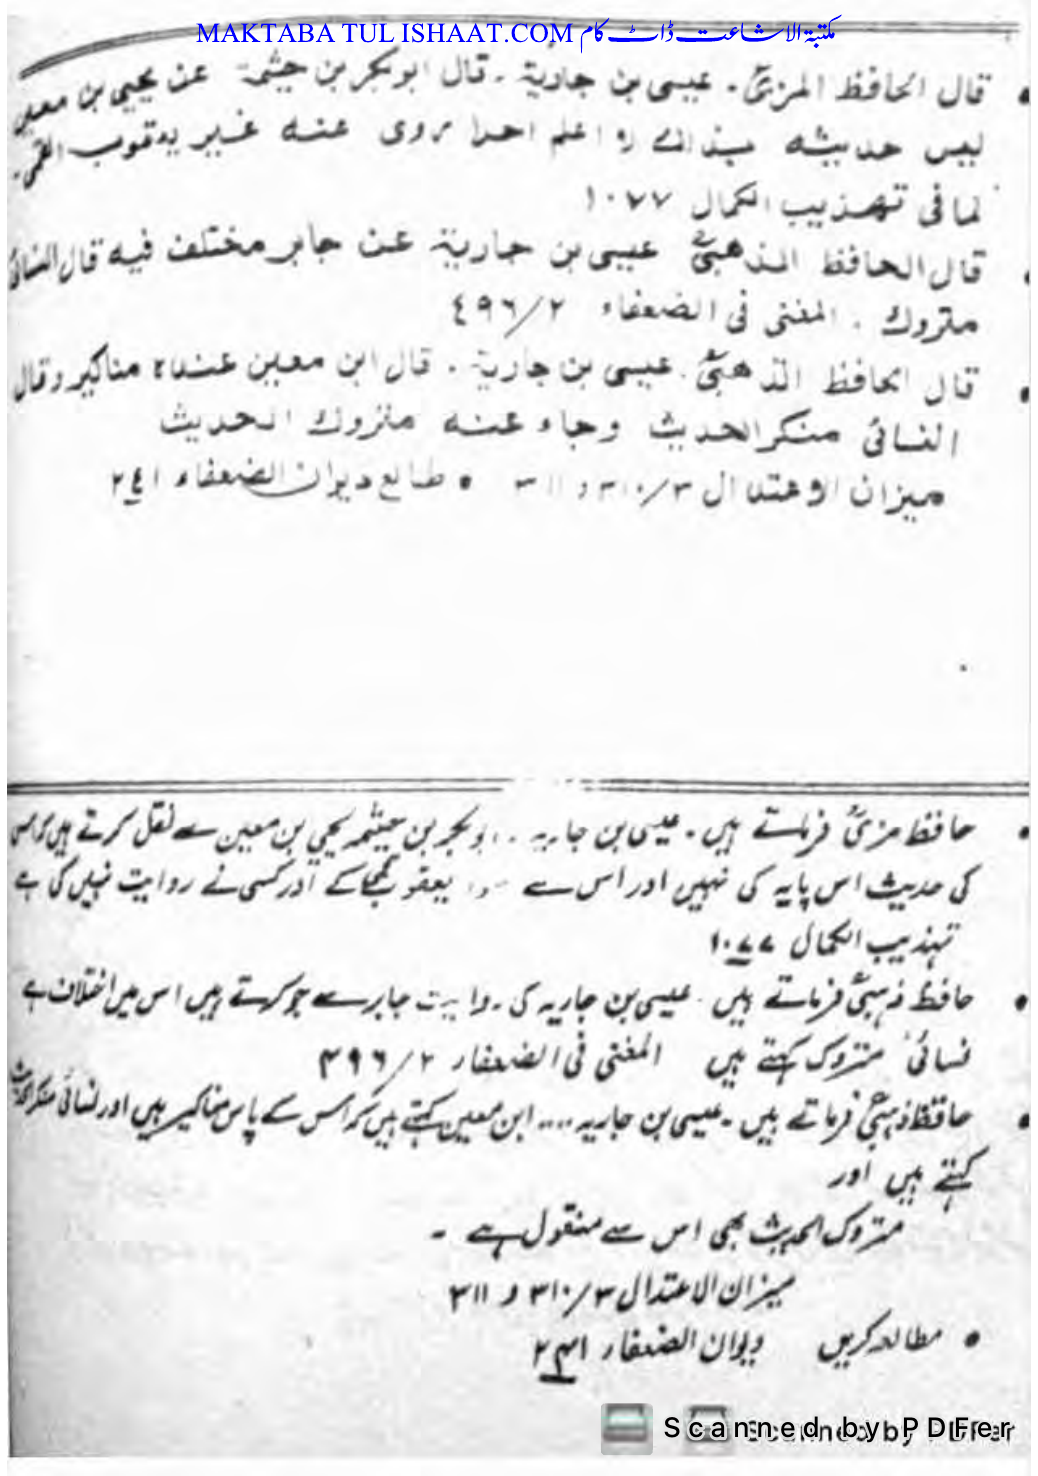 MAKTABA TUL ISHAAT.COM مکتبۃ الاشاعت ڈاٹ کام
• قال الحافظ المزیؒ۔ عیسی بن جاریۃ ۔ قال ابو بکر بن خیثمۃ عن یحیی بن معین
لیس حدیثہ بذالک لا اعلم احدا روی عنہ غیر یعقوب القمی۔
لما فی تہذیب الکمال ۱۰۷۷
• قال الحافظ الذھبیؒ عیسی بن جاریۃ عن جابر مختلف فیہ قال النسائی
متروک . المغنی فی الضعفاء ۲/٤٩٦
• قال الحافظ الذھبیؒ. عیسی بن جاریۃ . قال ابن معین عندہ مناکیر وقال
النسائی منکر الحدیث وجاء عنہ متروک الحدیث
میزان الاعتدال ۳/۳۱۰ و ۳۱۱ • طالع دیوان الضعفاء ۲٤۱
• حافظ مزیؒ فرماتے ہیں۔ عیسی بن جاریہ ۔ ابو بکر بن خیثمہ یحیی بن معین سے نقل کرتے ہیں کہ اس
کی حدیث اس پایہ کی نہیں اور اس سے یعقوب کے اور کسی نے روایت نہیں کی ہے
تہذیب الکمال ۱۰۷۷
• حافظ ذہبیؒ فرماتے ہیں۔ عیسی بن جاریہ کی روایت جابر سے جو کرتے ہیں اس میں اختلاف ہے
نسائیؒ متروک کہتے ہیں المغنی فی الضعفاء ۲/۴۹۶
• حافظ ذہبیؒ فرماتے ہیں۔ عیسی بن جاریہ .... ابن معین کہتے ہیں کہ اس کے پاس مناکیر ہیں اور نسائی منکر الحدیث
کہتے ہیں اور
متروک الحدیث بھی اس سے منقول ہے ۔
میزان الاعتدال ۳/۳۱۰ و ۳۱۱
• مطالعہ کریں دیوان الضعفاء ۲۴۱
Scanned by PDFer